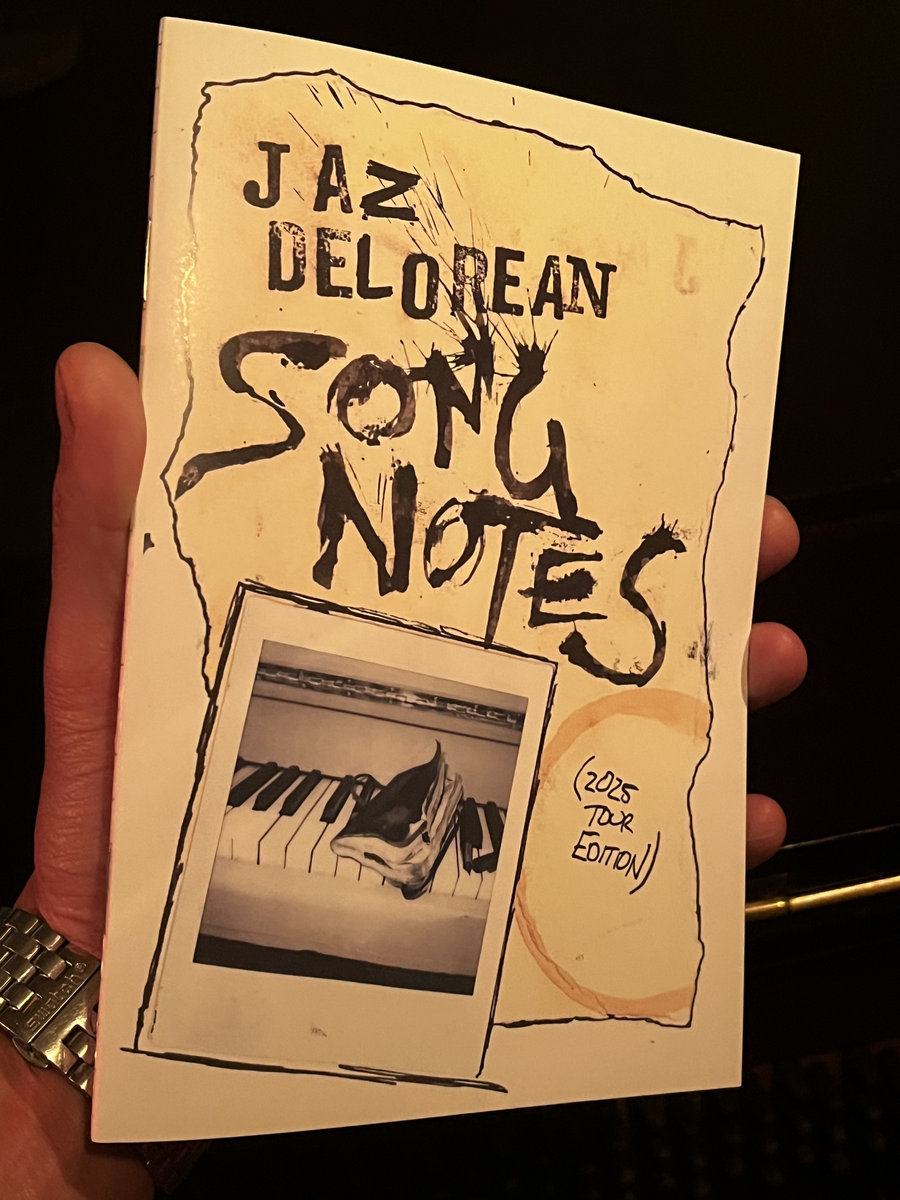 JAZ
DELOREAN
SONG
NOTES
(2025
TOUR
EDITION)
swatch